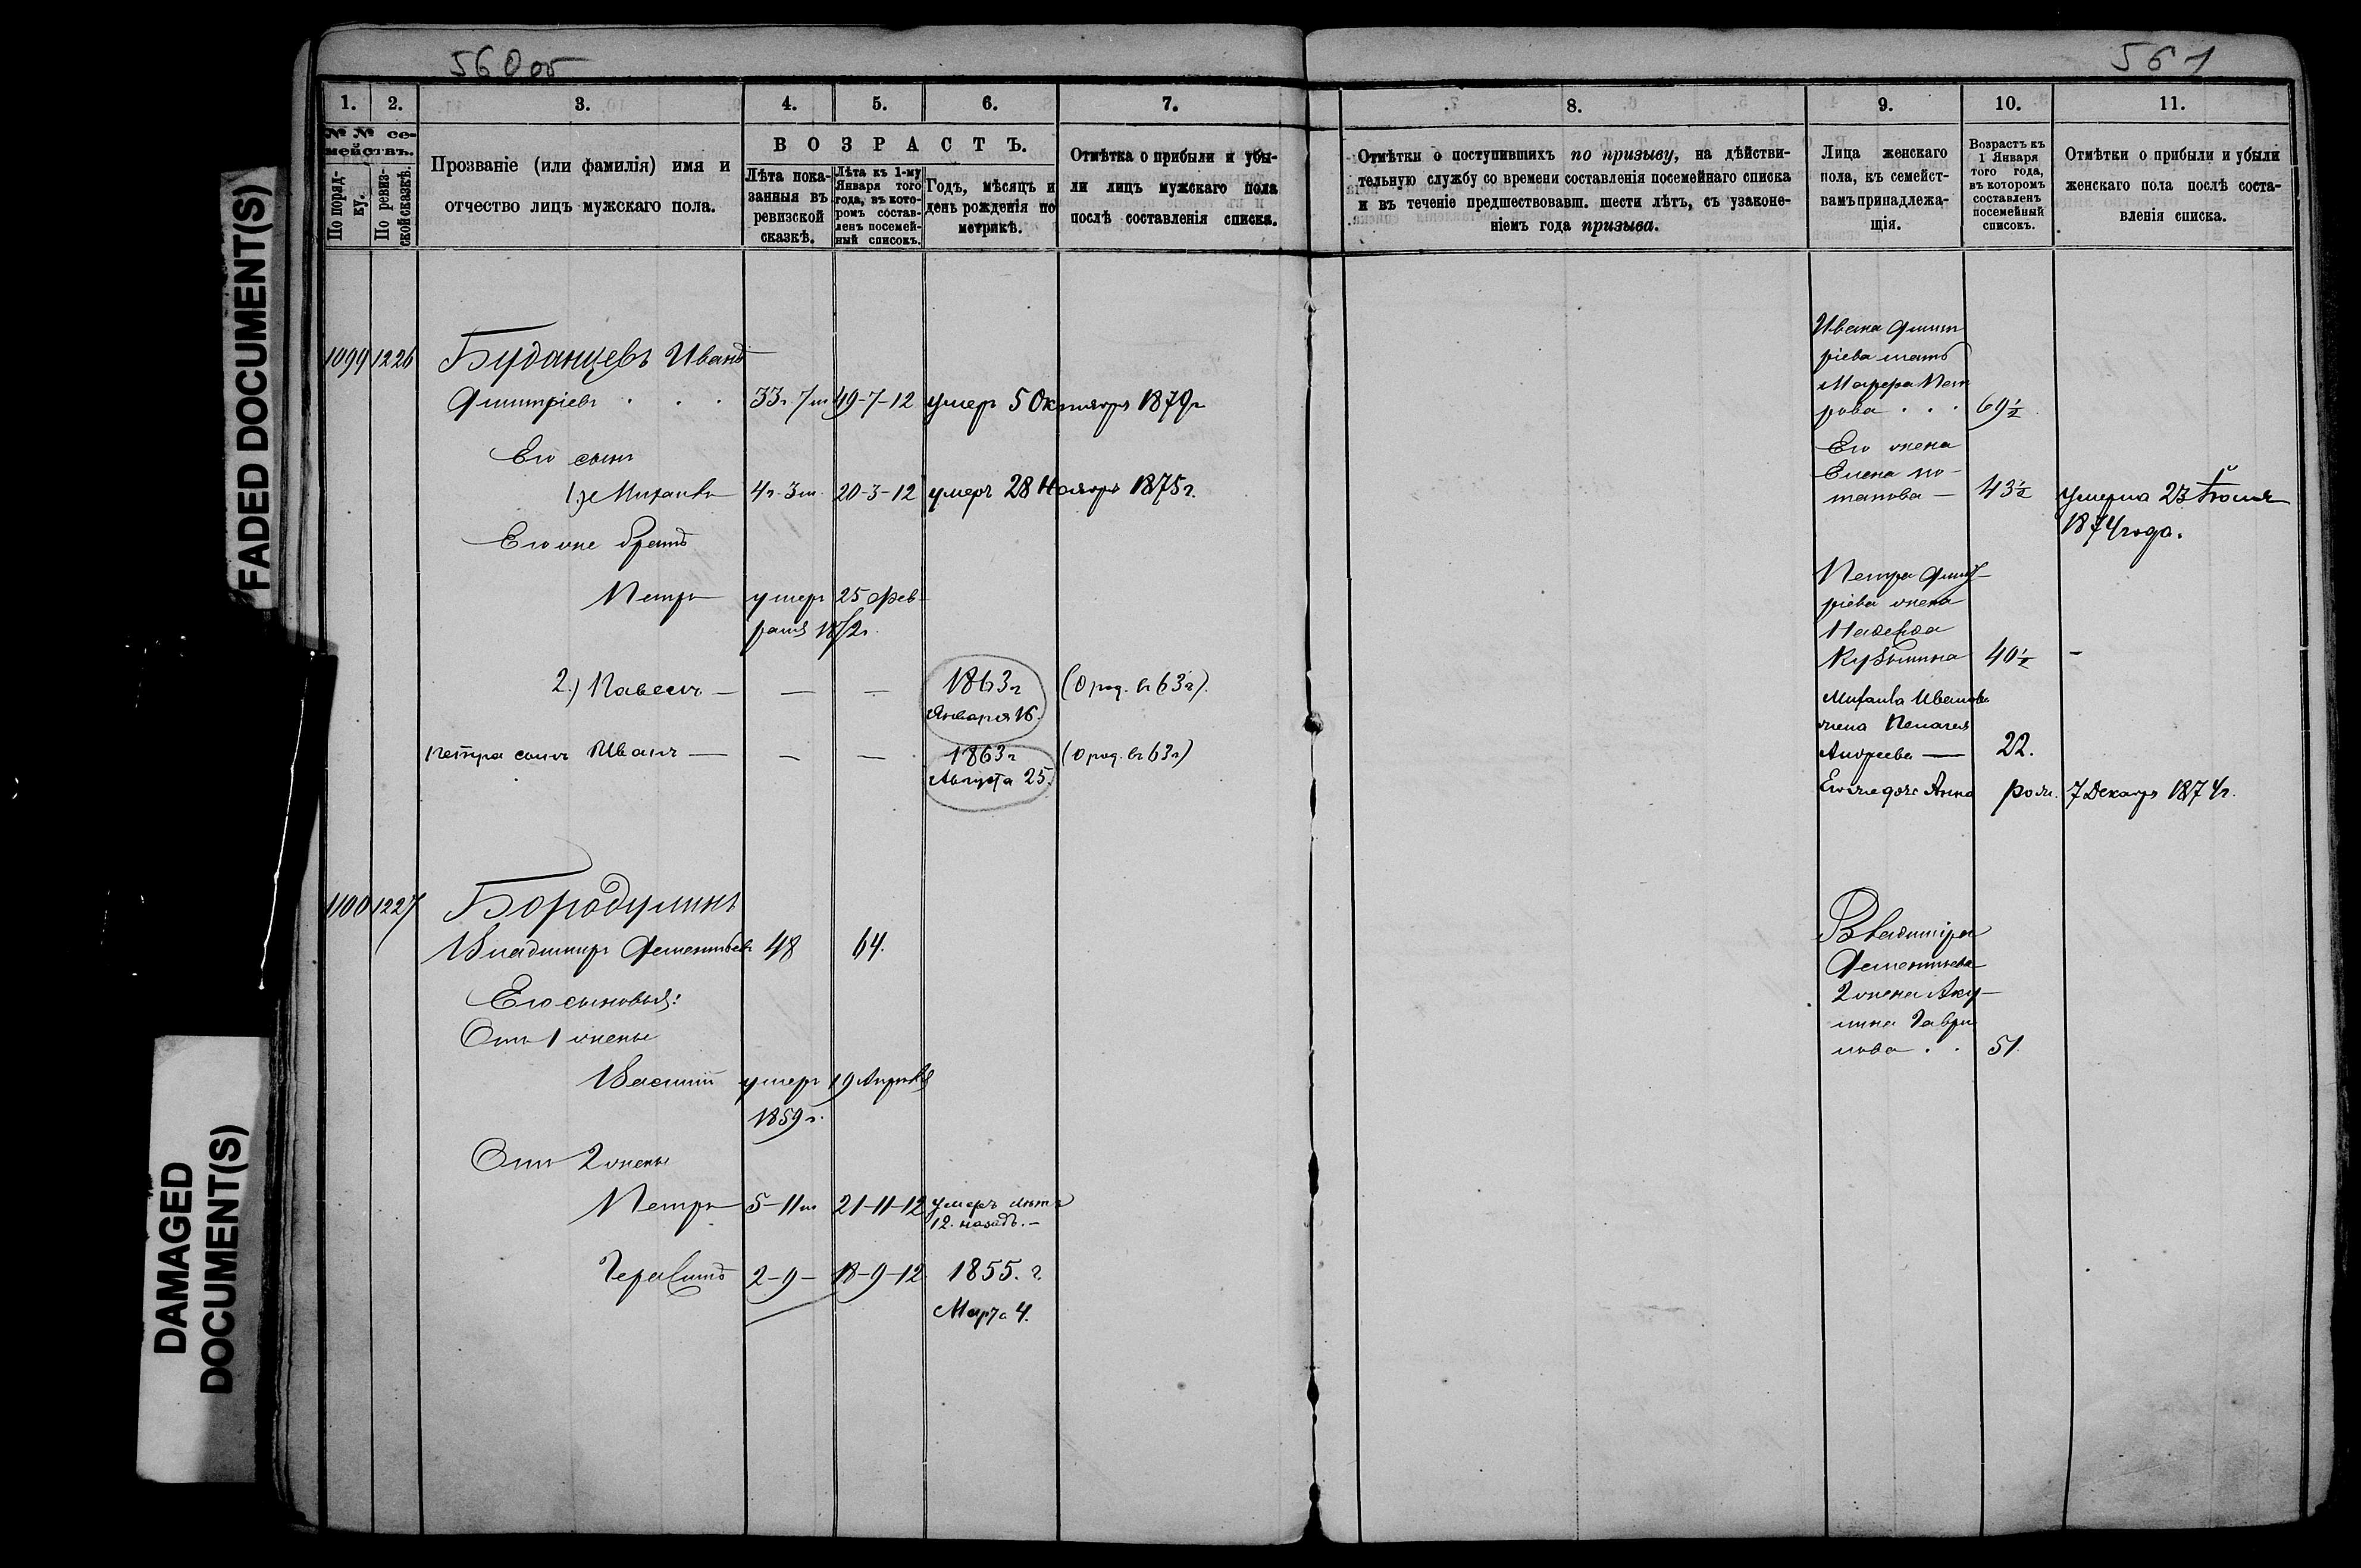 560 об
561
FADED DOCUMENT(S)
DAMAGED
DOCUMENT(S)
1. 2. 3. 4. 5. 6. 7.
№ № се-
мействъ.
По поряд-
ку.
По ревиз-
ской сказкѣ.
Прозваніе (или фамилія) имя и
отчество лицъ мужскаго пола.
ВОЗРАСТЪ.
Лѣта пока-
занныя въ
ревизской
сказкѣ.
Лѣта къ 1-му
Января того
года, въ кото-
ромъ состав-
ленъ посемей-
ный списокъ.
Годъ, мѣсяцъ и
день рожденія по
метрикѣ.
Отмѣтка о прибыли и убы-
ли лицъ мужскаго пола
послѣ составленія списка.
1099 1226 Буданцевъ Иванъ
Дмитріевъ . . . 33г. 7м 49-7-12 умеръ 5 Октября 1879г
Его сынъ
1.) Михаилъ 4г. 3м. 20-3-12 умеръ 28 Ноября 1875г.
Его же братъ
Петръ умеръ 25 Фев-
раля 1872г.
2.) Павелъ — — — 1863г (О род. въ 63г).
Января 16.
Петра сынъ Иванъ — — — 1863г (О род. въ 63г)
Августа 25.
1100 1227 Бородулинъ
Владимиръ Дементьевъ 48 64.
Его сыновья:
Отъ 1 жены
Василій умеръ 19 Апрѣля
1859г.
Отъ 2 жены
Петръ 5-11м 21-11-12 умеръ лѣтъ
12. назадъ.—
Герасимъ 2-9- 18-9-12 1855. г.
Марта 4.
8. 9. 10. 11.
Отмѣтки о поступившихъ по призыву, на дѣйстви-
тельную службу со времени составленія посемейнаго списка
и въ теченіе предшествовавш. шести лѣтъ, съ узаконе-
ніемъ года призыва.
Лица женскаго
пола, къ семейст-
вамъ принадлежа-
щія.
Возрастъ къ
1 Января
того года,
въ которомъ
составленъ
посемейный
списокъ.
Отмѣтки о прибыли и убыли
женскаго пола послѣ соста-
вленія списка.
Ивана Дмит
ріева мать
Марфа Пет
рова . . . 69½.
Его жена
Елена По-
тапова — 43½ умерла 23 Іюля
1874 года.
Петра Дмит-
ріева жена
Надежда
Кузьмина 40½ -
Михаила Иванова
жена Пелагея
Андреева — 22.
Его же дочь Анна рож. 7 Декабря 1874г.
Владиміра
Дементьева
2 жена Аку-
лина Гаври
лова . . 51.